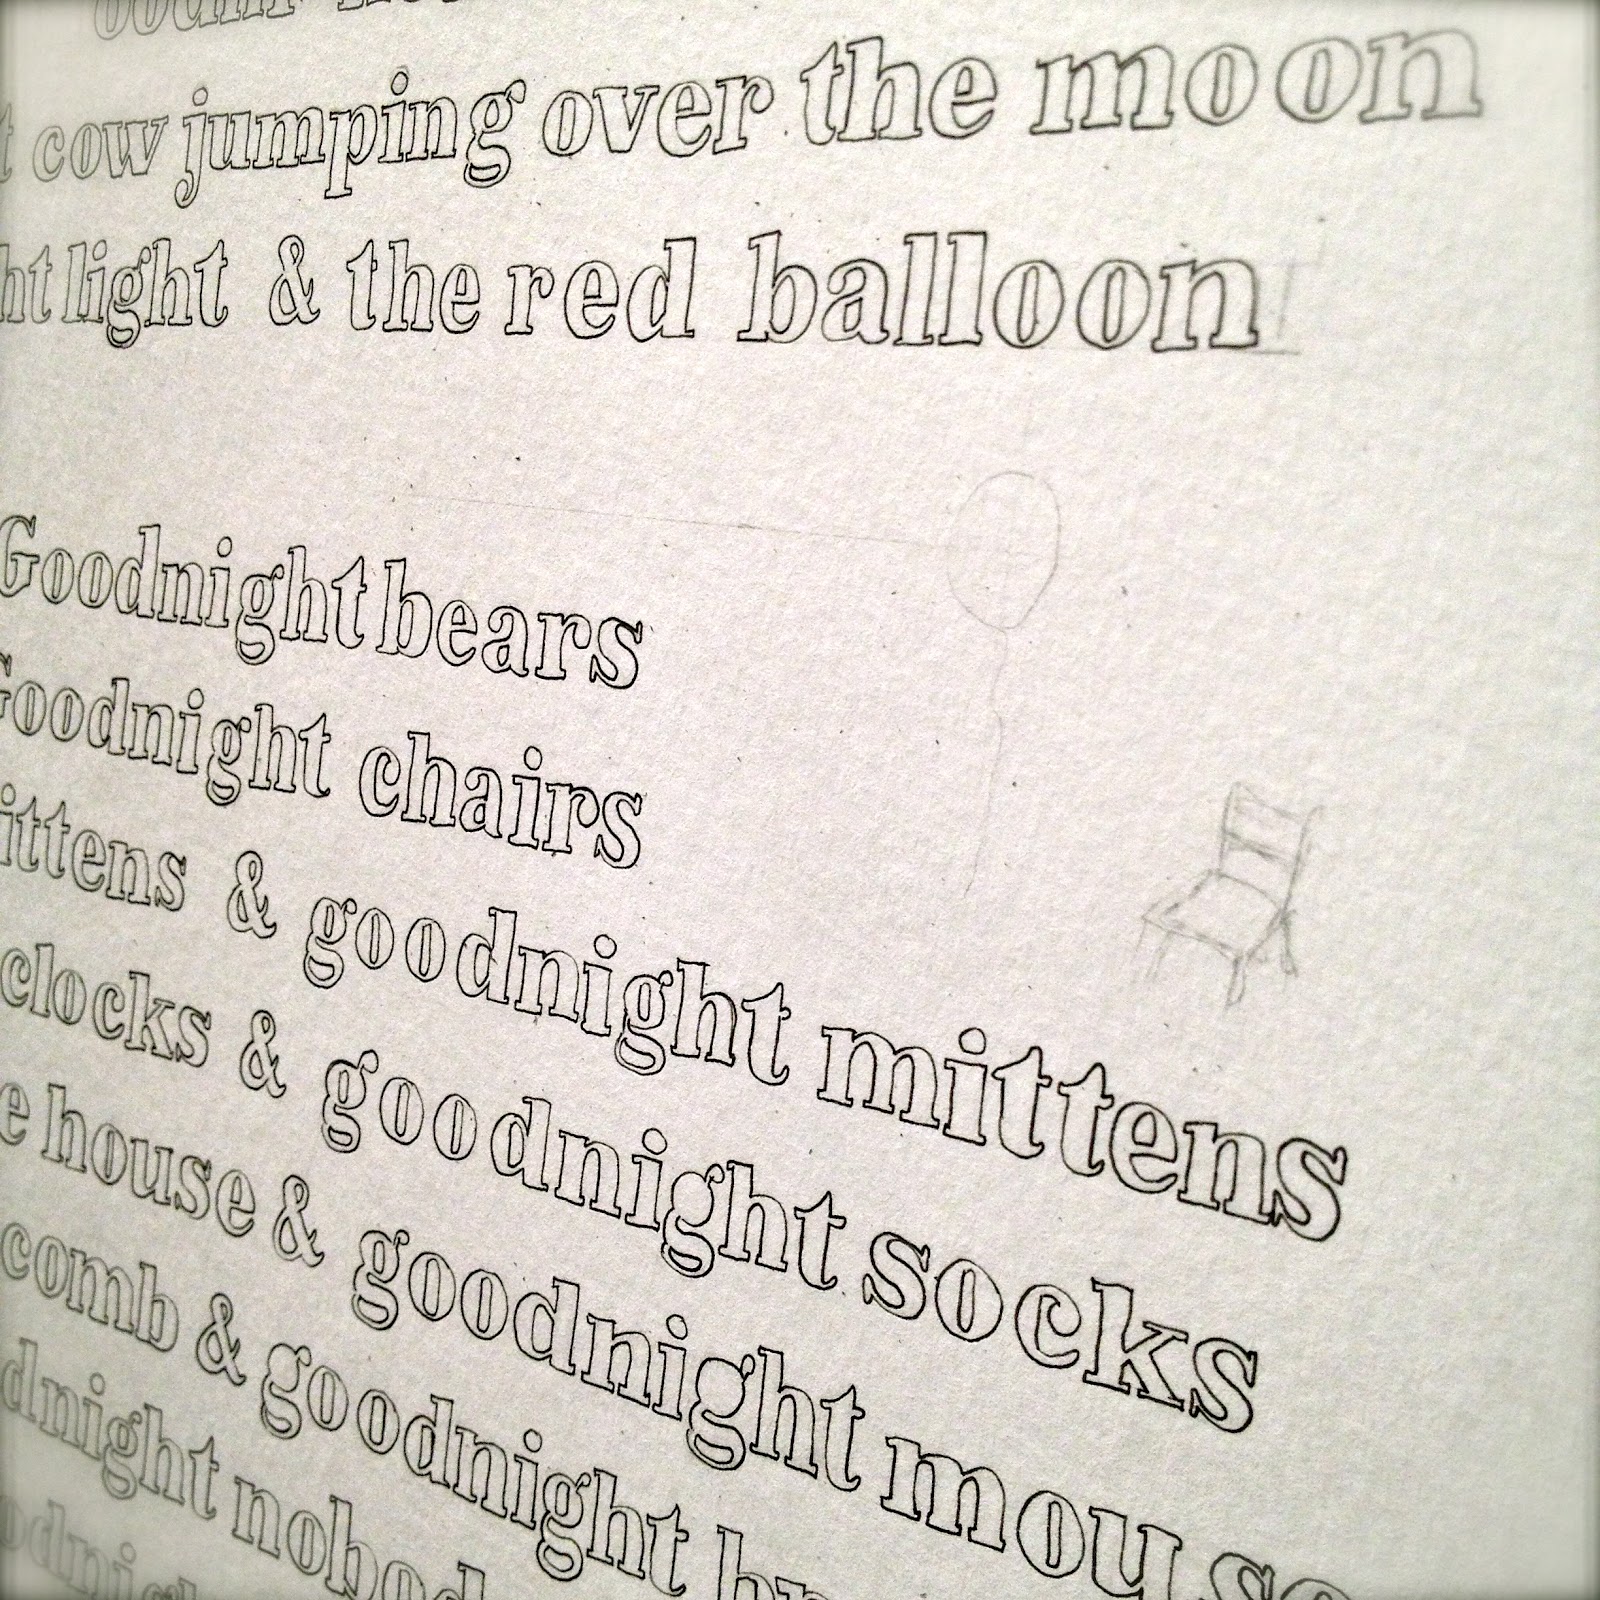 cow jumping over the moon
light & the red balloon
Goodnight bears
Goodnight chairs
ittens & goodnight mittens
clocks & goodnight socks
e house & goodnight mouse
comb & goodnight br
dnight nobod